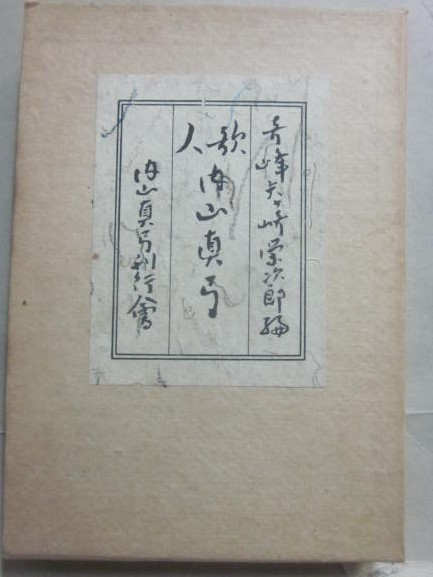 奇峰矢ヶ崎栄次郎編
歌人
内山真弓
内山真弓刊行會